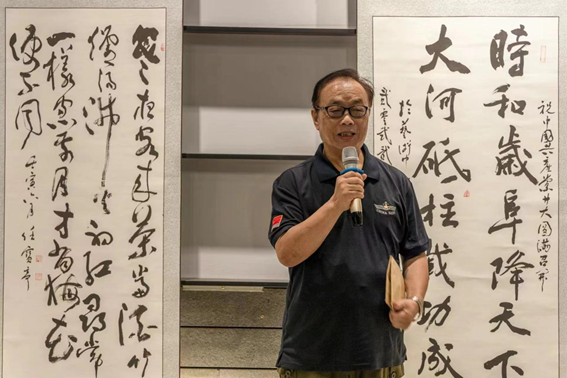 祝中國共產黨廿大圓滿召開
時和歲阜降天下
大河砥柱 功成
寒夜客來茶當酒竹
爐湯沸火初紅尋常
一樣窓前月才有梅花
便不同 壬寅六月